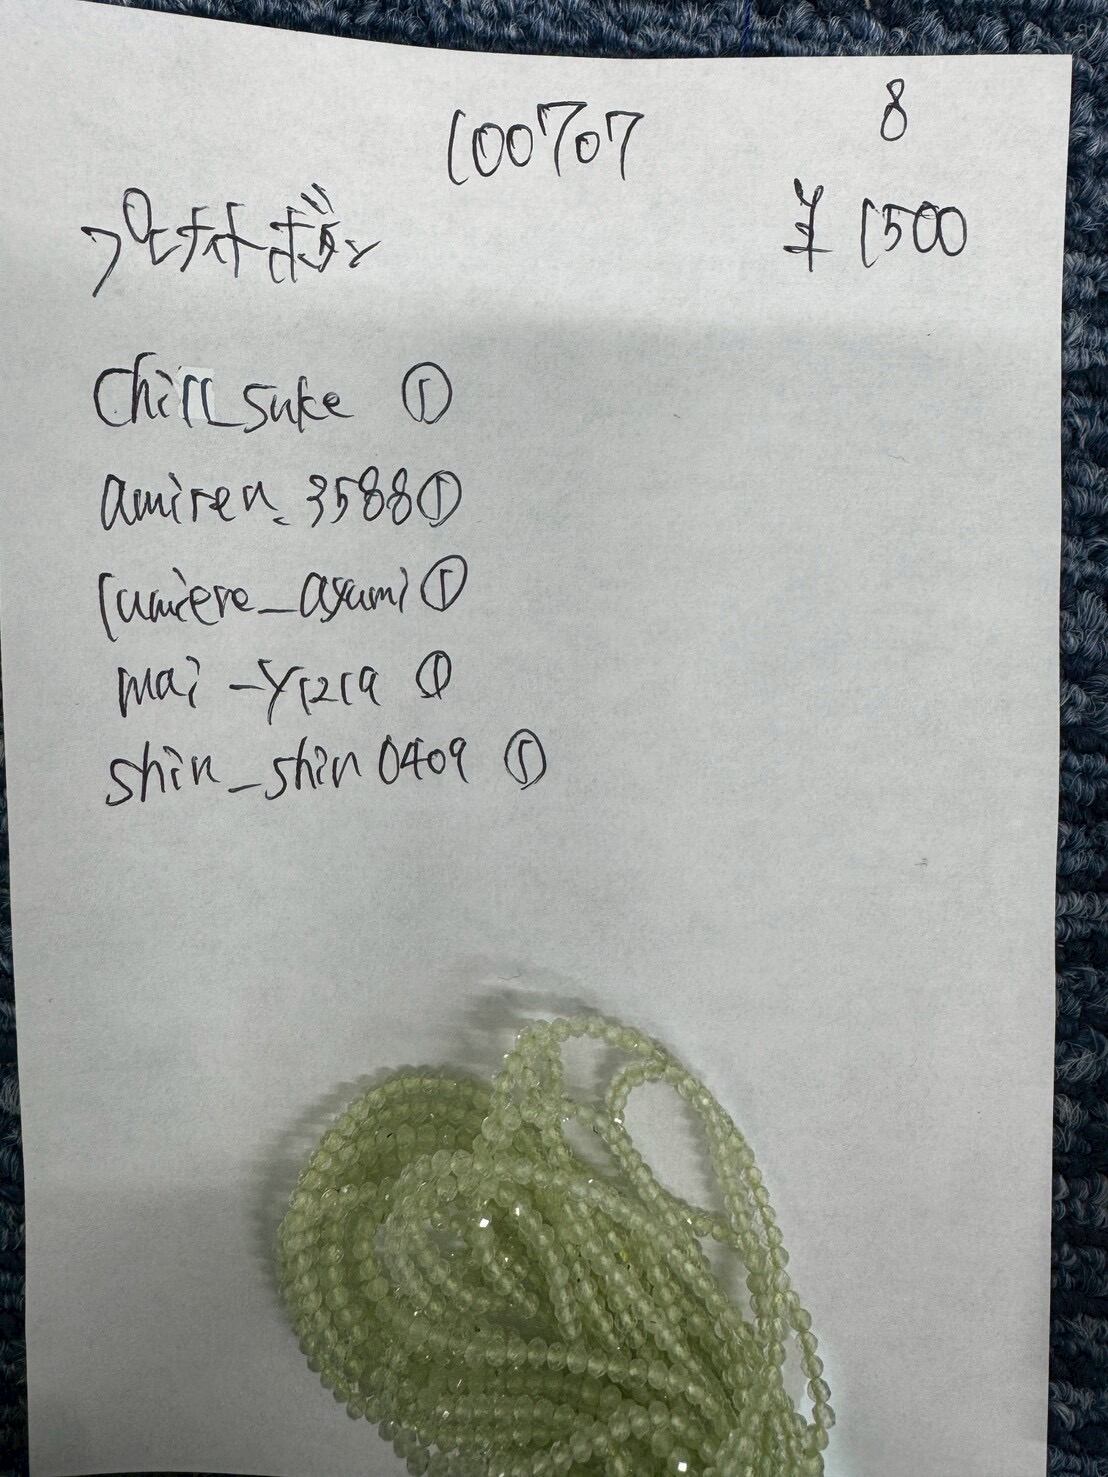 100707 8
プレナイトボタン ¥1500
Chill_suke ①
amiren_3588①
lumiere_ayumi①
mai-y1219 ①
shin_shin0409 ①